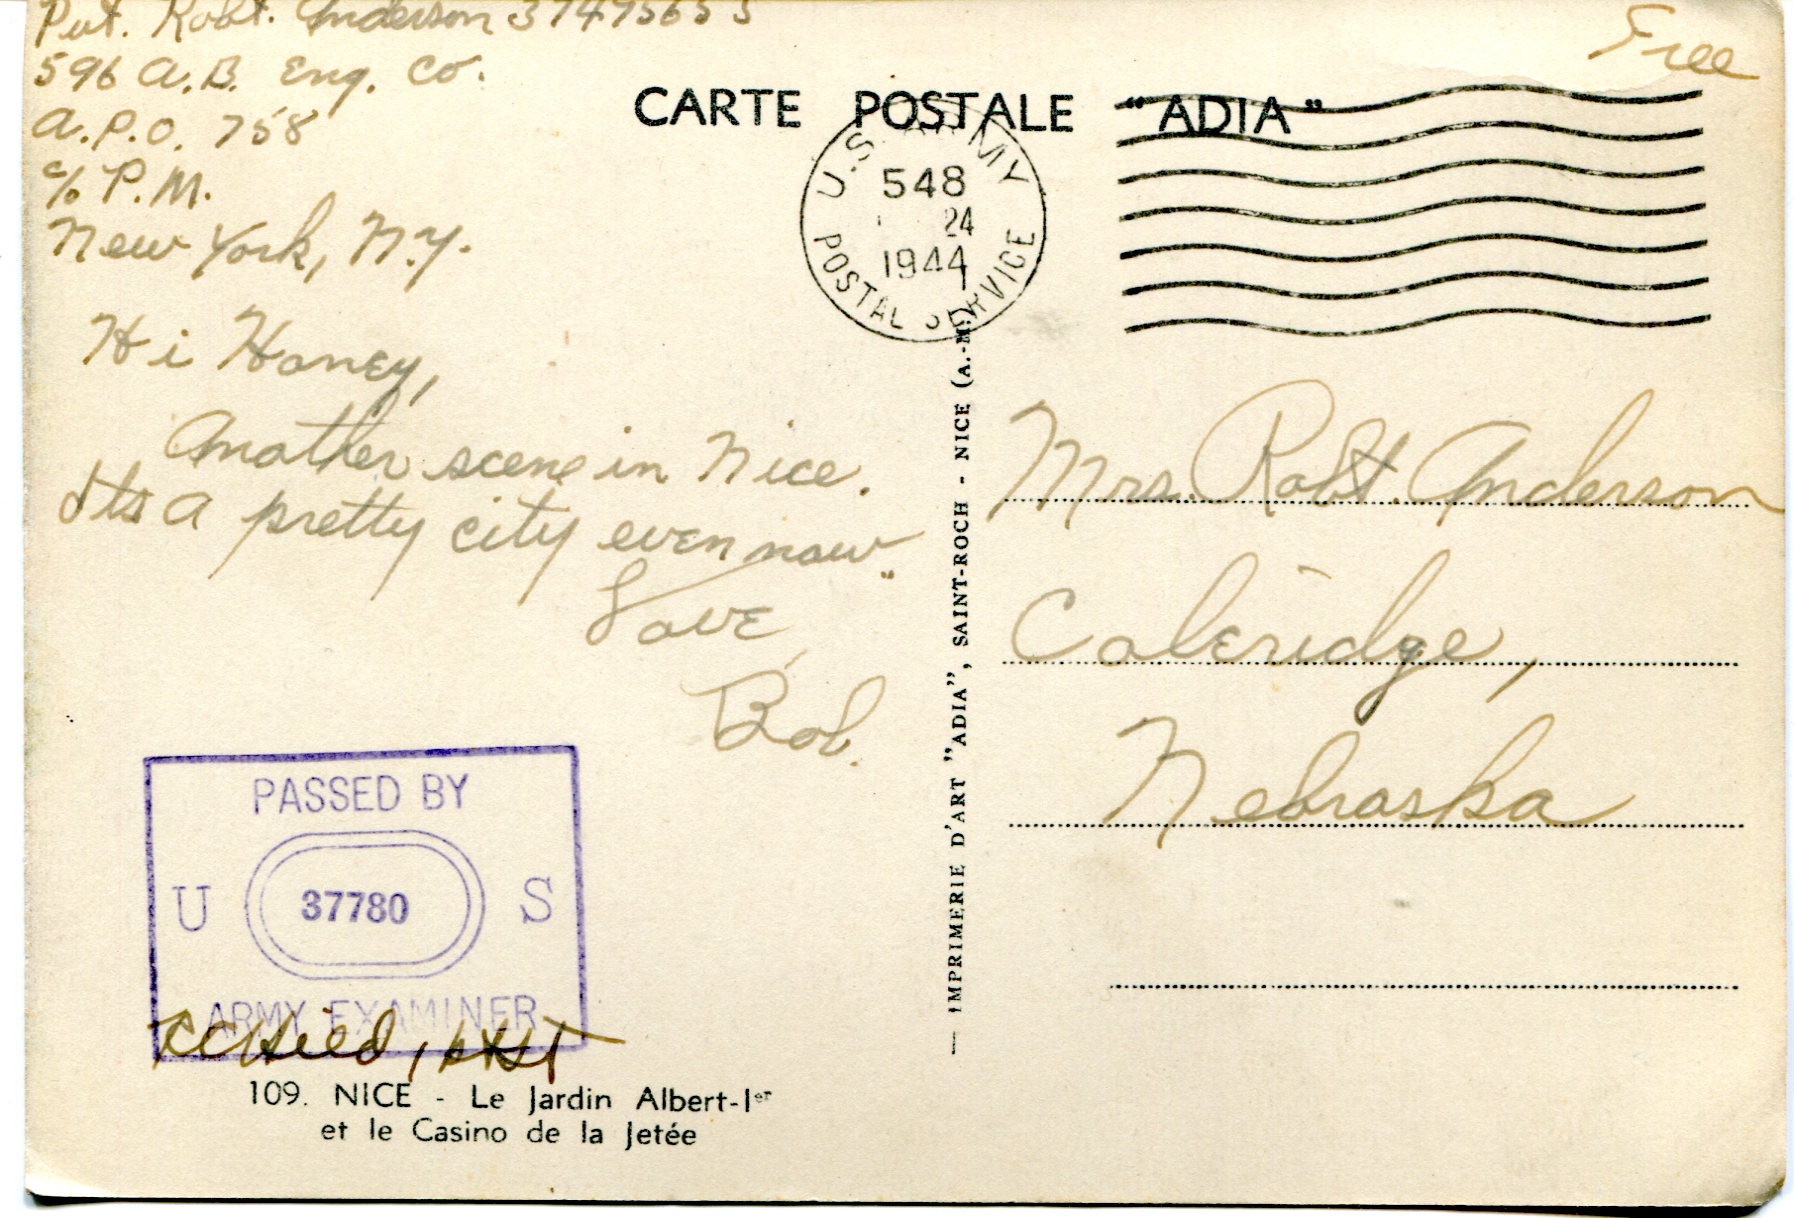 Pvt. Robt. Anderson 37475655
596 A.B. Eng. Co.
A.P.O. 758
c/o P.M.
New York, N.Y.
Free
CARTE POSTALE "ADIA"
U.S. ARMY
548
24
1944
POSTAL SERVICE
Hi Honey,
Another scene in Nice.
Its a pretty city even now.
Love
Bob.
Mrs. Robt. Anderson
Coleridge,
Nebraska
— IMPRIMERIE D'ART "ADIA", SAINT-ROCH - NICE (A.-M.)
PASSED BY
U 37780 S
ARMY EXAMINER
109. NICE - Le Jardin Albert-Ier
et le Casino de la Jetée